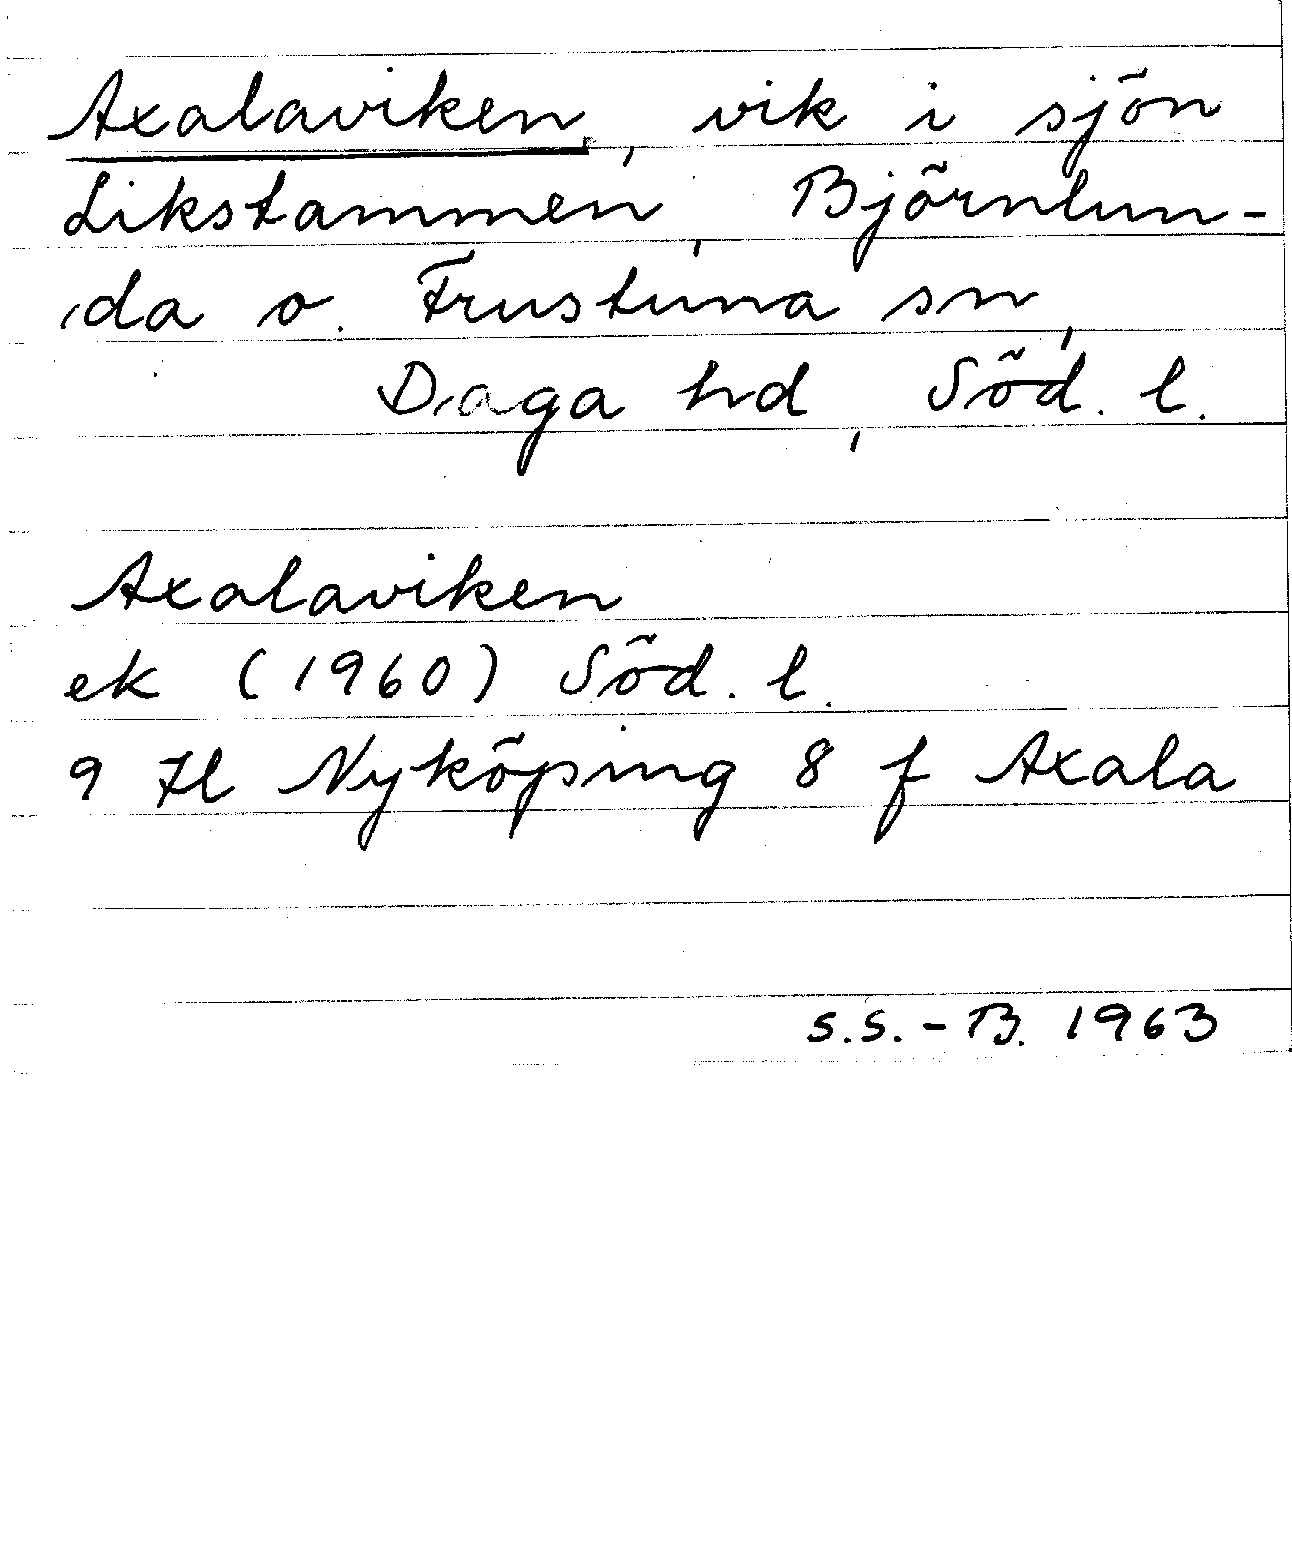 Axalaviken, vik i sjön
Likstammen, Björnlun-
da o. Frustuna sn,
Daga hd, Söd. l.
Axalaviken
ek (1960) Söd. l.
9 H Nyköping 8 f Axala
S.S.-B. 1963